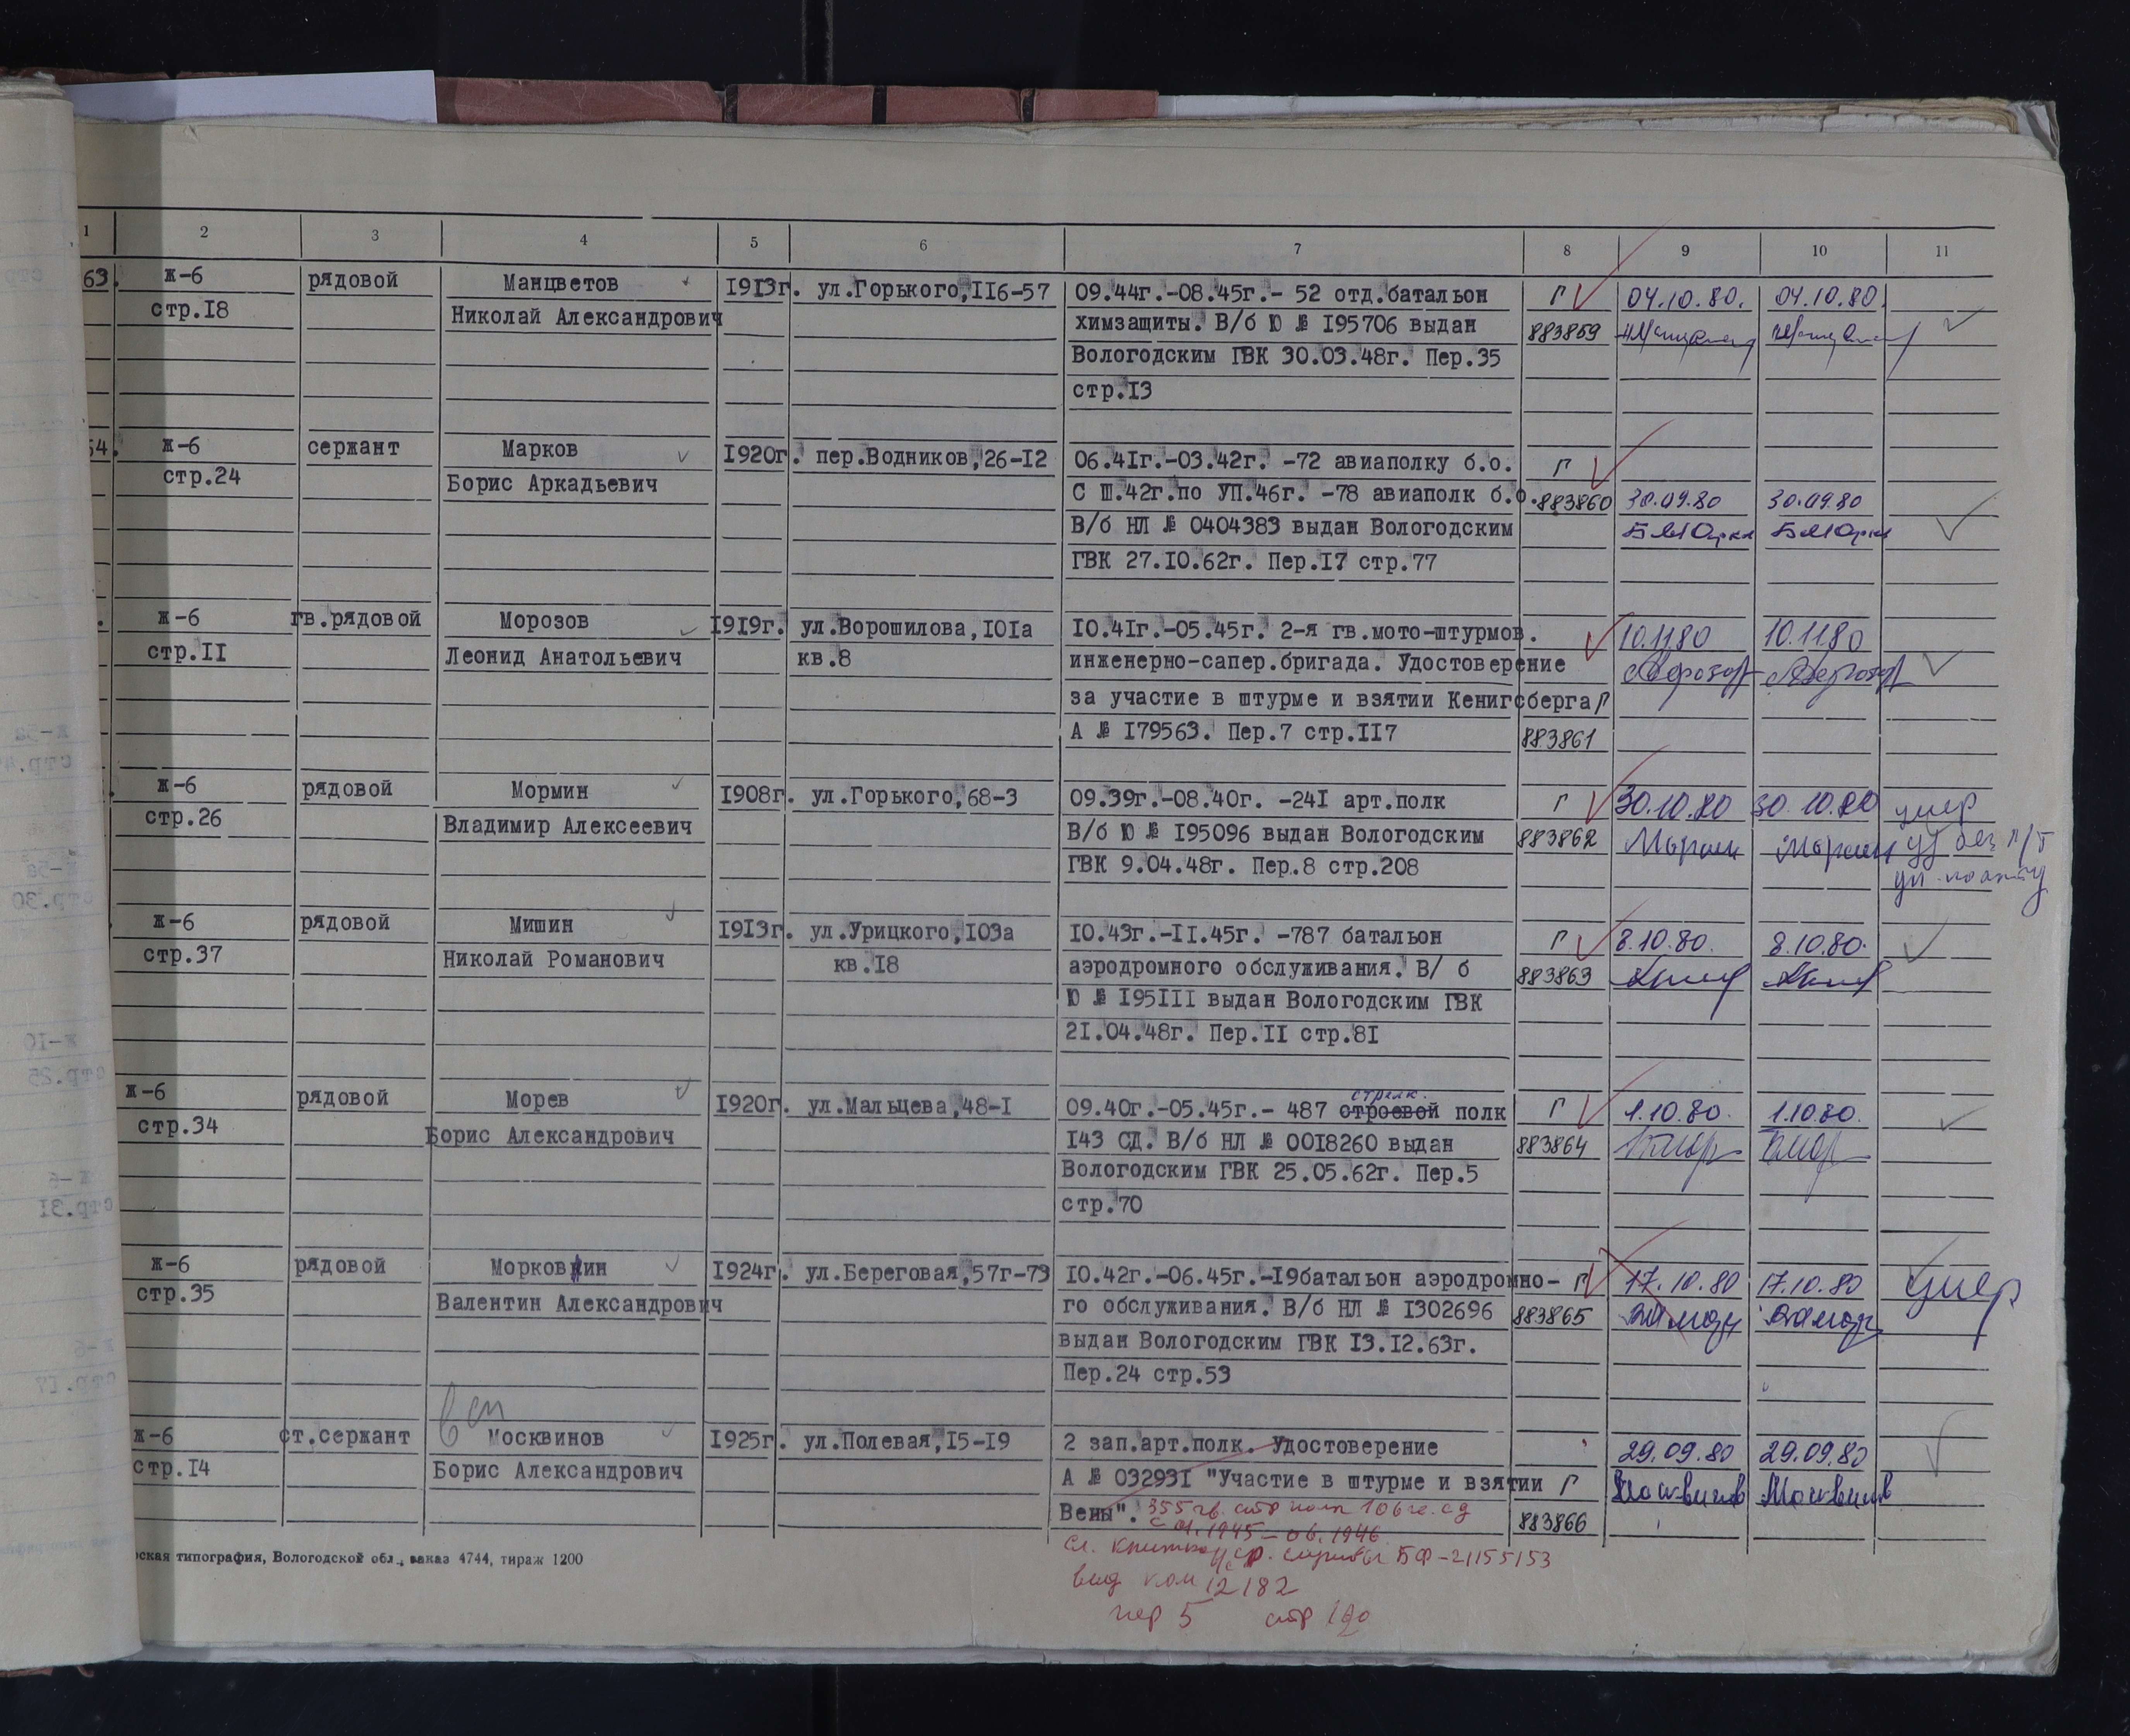 1 2 3 4 5 6 7 8 9 10 11
63. ж-6 рядовой Манцветов 1913г. ул.Горького,116-57 09.44г.-08.45г.- 52 отд.батальон Г 04.10.80. 04.10.80.
стр.18 Николай Александрович химзащиты. В/б Ю № 195706 выдан 883859
Вологодским ГВК 30.03.48г. Пер.35
стр.13
54. ж-6 сержант Марков 1920г. пер.Водников,26-12 06.41г.-03.42г. -72 авиаполку б.о. Г
стр.24 Борис Аркадьевич С Ш.42г.по УП.46г. -78 авиаполк б.о. 883860 30.09.80 30.09.80
В/б НЛ № 0404383 выдан Вологодским
ГВК 27.10.62г. Пер.17 стр.77
. ж-6 гв.рядовой Морозов 1919г. ул.Ворошилова,101а 10.41г.-05.45г. 2-я гв.мото-штурмов. 10.11.80 10.11.80
стр.11 Леонид Анатольевич кв.8 инженерно-сапер.бригада. Удостоверение
за участие в штурме и взятии Кенигсберга Г
А № 179563. Пер.7 стр.117 883861
. ж-6 рядовой Мормин 1908г. ул.Горького,68-3 09.39г.-08.40г. -241 арт.полк Г 30.10.80 30.10.80 умер
стр.26 Владимир Алексеевич В/б Ю № 195096 выдан Вологодским 883862 Мормин Мормин
ГВК 9.04.48г. Пер.8 стр.208
. ж-6 рядовой Мишин 1913г. ул.Урицкого,103а 10.43г.-11.45г. -787 батальон Г 8.10.80. 8.10.80.
стр.37 Николай Романович кв.18 аэродромного обслуживания. В/ б 883863
Ю № 195111 выдан Вологодским ГВК
21.04.48г. Пер.11 стр.81
стрелк.
ж-6 рядовой Морев 1920г. ул.Мальцева,48-1 09.40г.-05.45г.- 487 строевой полк Г 1.10.80. 1.10.80.
стр.34 Борис Александрович 143 СД. В/б НЛ № 0018260 выдан 883864
Вологодским ГВК 25.05.62г. Пер.5
стр.70
ж-6 рядовой Морковкин 1924г. ул.Береговая,57г-73 10.42г.-06.45г.-19батальон аэродромно- Г 17.10.80 17.10.80 умер
стр.35 Валентин Александрович го обслуживания. В/б НЛ № 1302696 883865
выдан Вологодским ГВК 13.12.63г.
Пер.24 стр.53
ж-6 ст.сержант Москвинов 1925г. ул.Полевая,15-19 2 зап.арт.полк. Удостоверение 29.09.80 29.09.80
стр.14 Борис Александрович А № 032931 "Участие в штурме и взятии Г Москвинов Москвинов
Вены". 355 гв. стр полк 106 гв. сд 883866
с 01.1945 - 06.1946
ская типография, Вологодской обл., заказ 4744, тираж 1200
БФ-21155153
12182
пер 5 стр 120